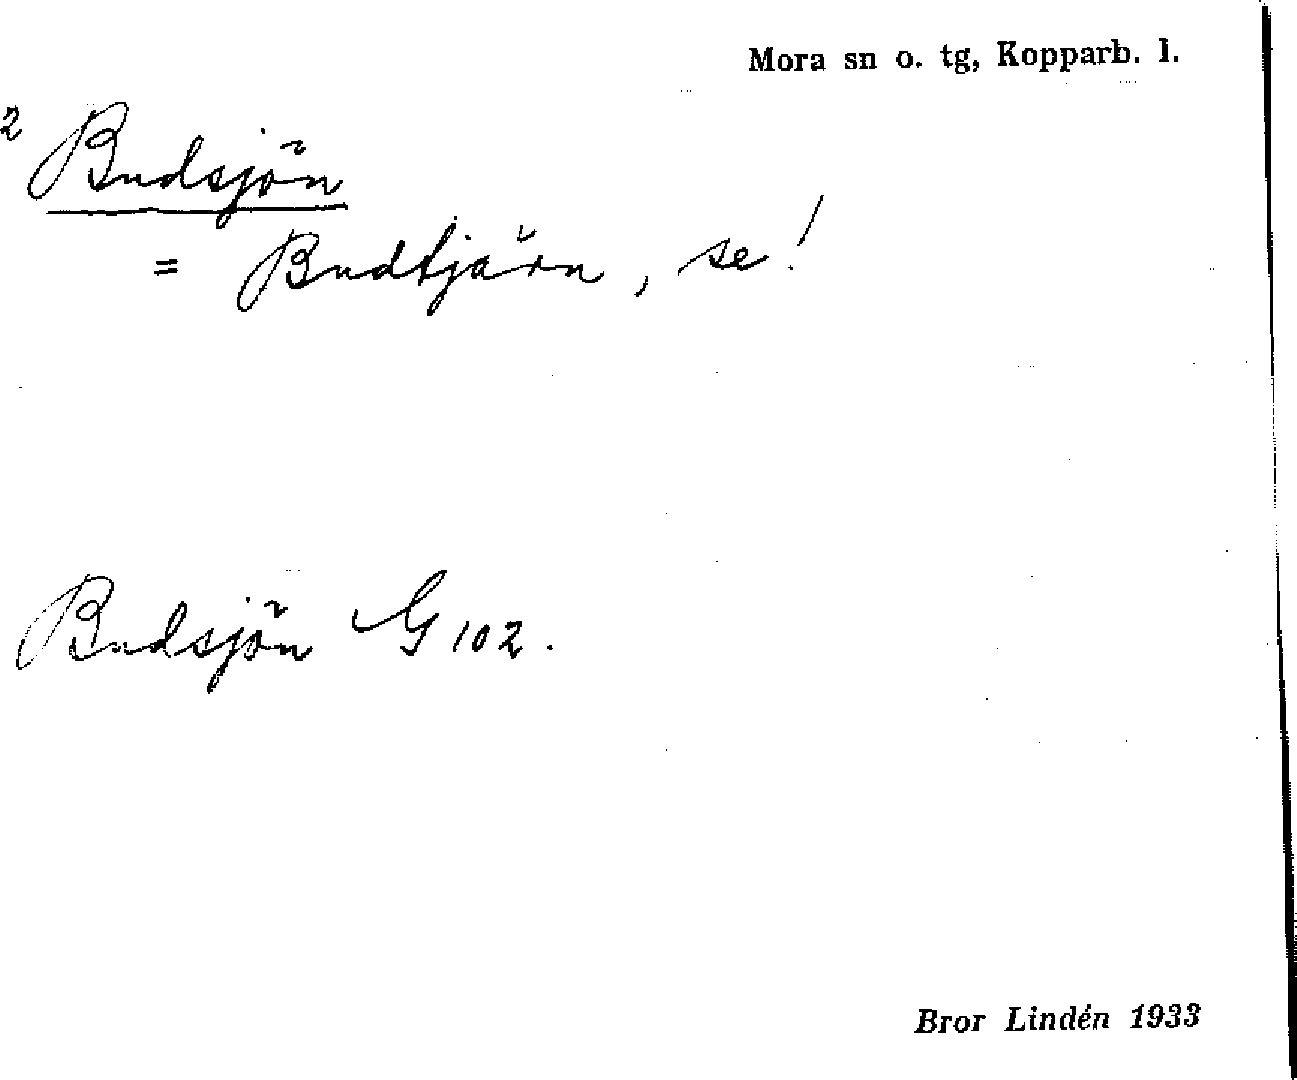 Mora sn o. tg, Kopparb. l.
2 Budsjön
= Budtjärn, se!
Budsjön G 102.
Bror Lindén 1933